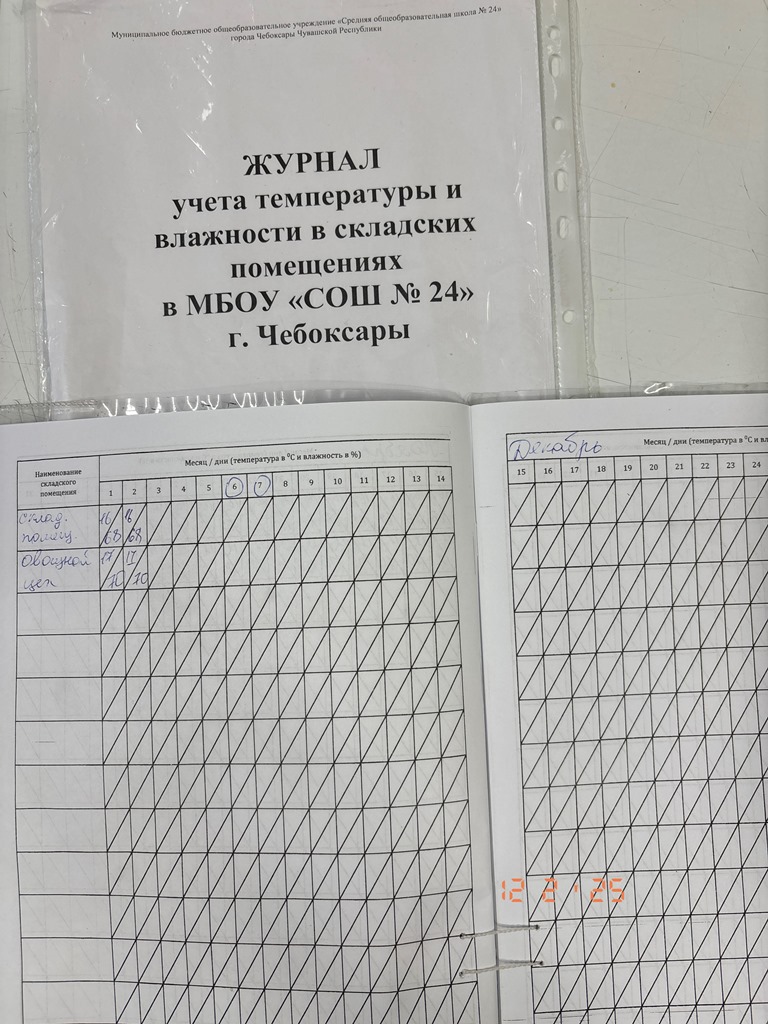 Муниципальное бюджетное общеобразовательное учреждение «Средняя общеобразовательная школа № 24»
города Чебоксары Чувашской Республики
ЖУРНАЛ
учета температуры и
влажности в складских
помещениях
в МБОУ «СОШ № 24»
г. Чебоксары
Наименование
складского
помещения
Месяц / дни (температура в ⁰С и влажность в %)
1 2 3 4 5 6 7 8 9 10 11 12 13 14
Склад. 16 16
помещ. 68 68
Овощной 17 17
цех 70 70
Декабрь
Месяц / дни (температура в ⁰С и вл
15 16 17 18 19 20 21 22 23 24
12 2 '25